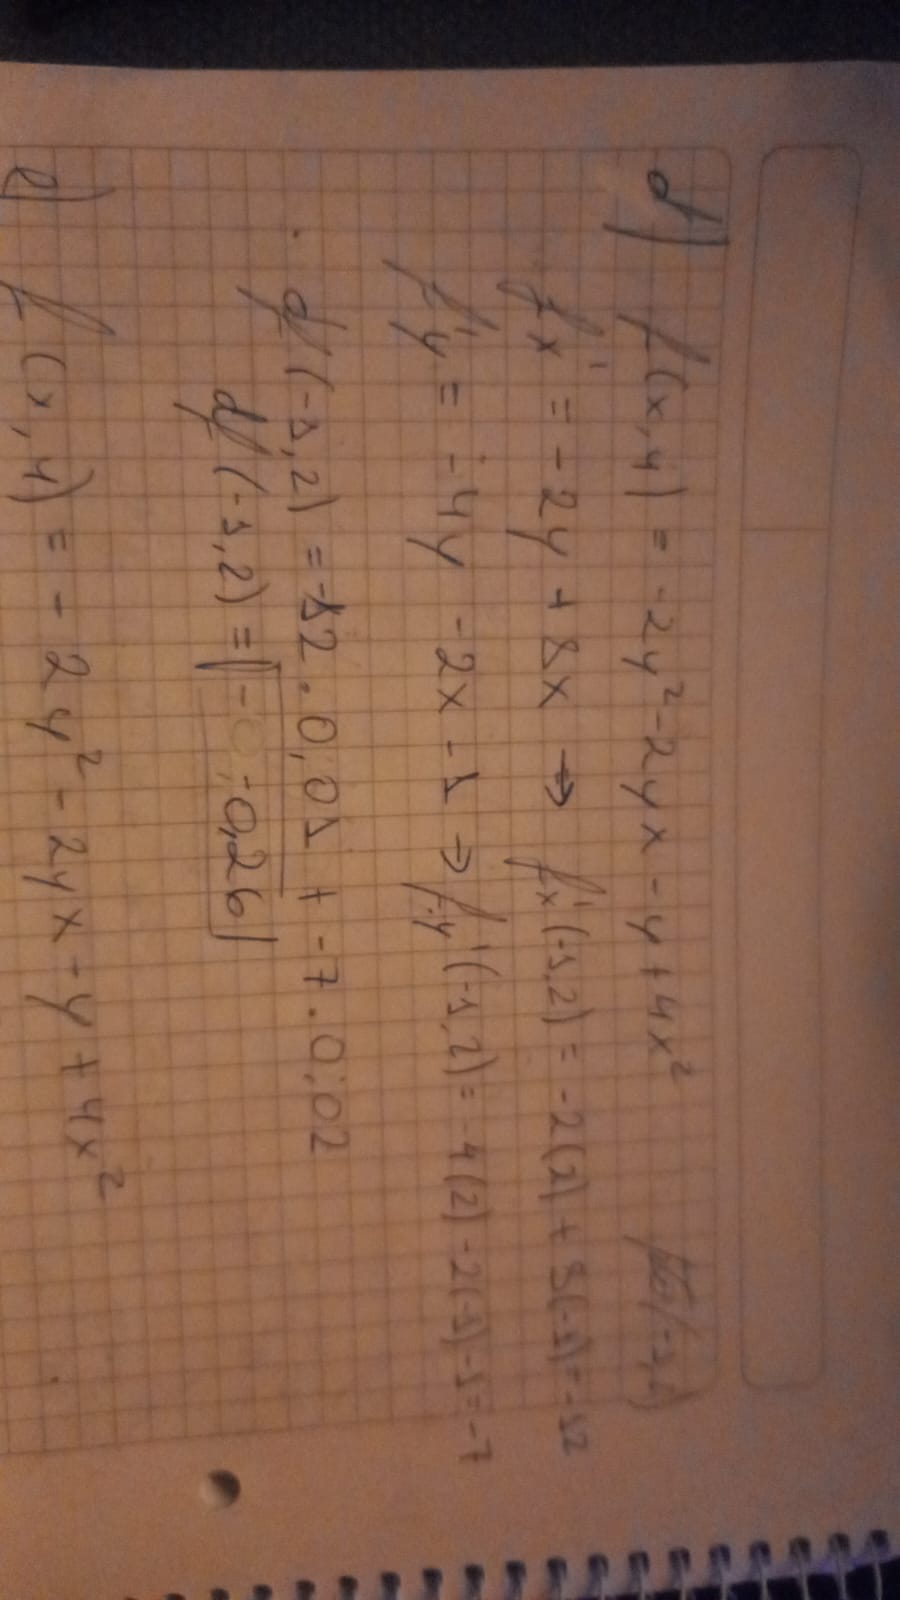 d) f(x,y) = -2y² - 2yx - y + 4x²
fx' = -2y + 8x → fx'(-1,2) = -2(2) + 8(-1) = -12
f'y = -4y - 2x - 1 → f'y(-1,2) = -4(2) - 2(-1) - 1 = -7
df(-1,2) = -12 . 0,01 + -7 . 0,02
df(-1,2) = -0,26
e) f(x,y) = -2y² - 2yx - y + 4x²